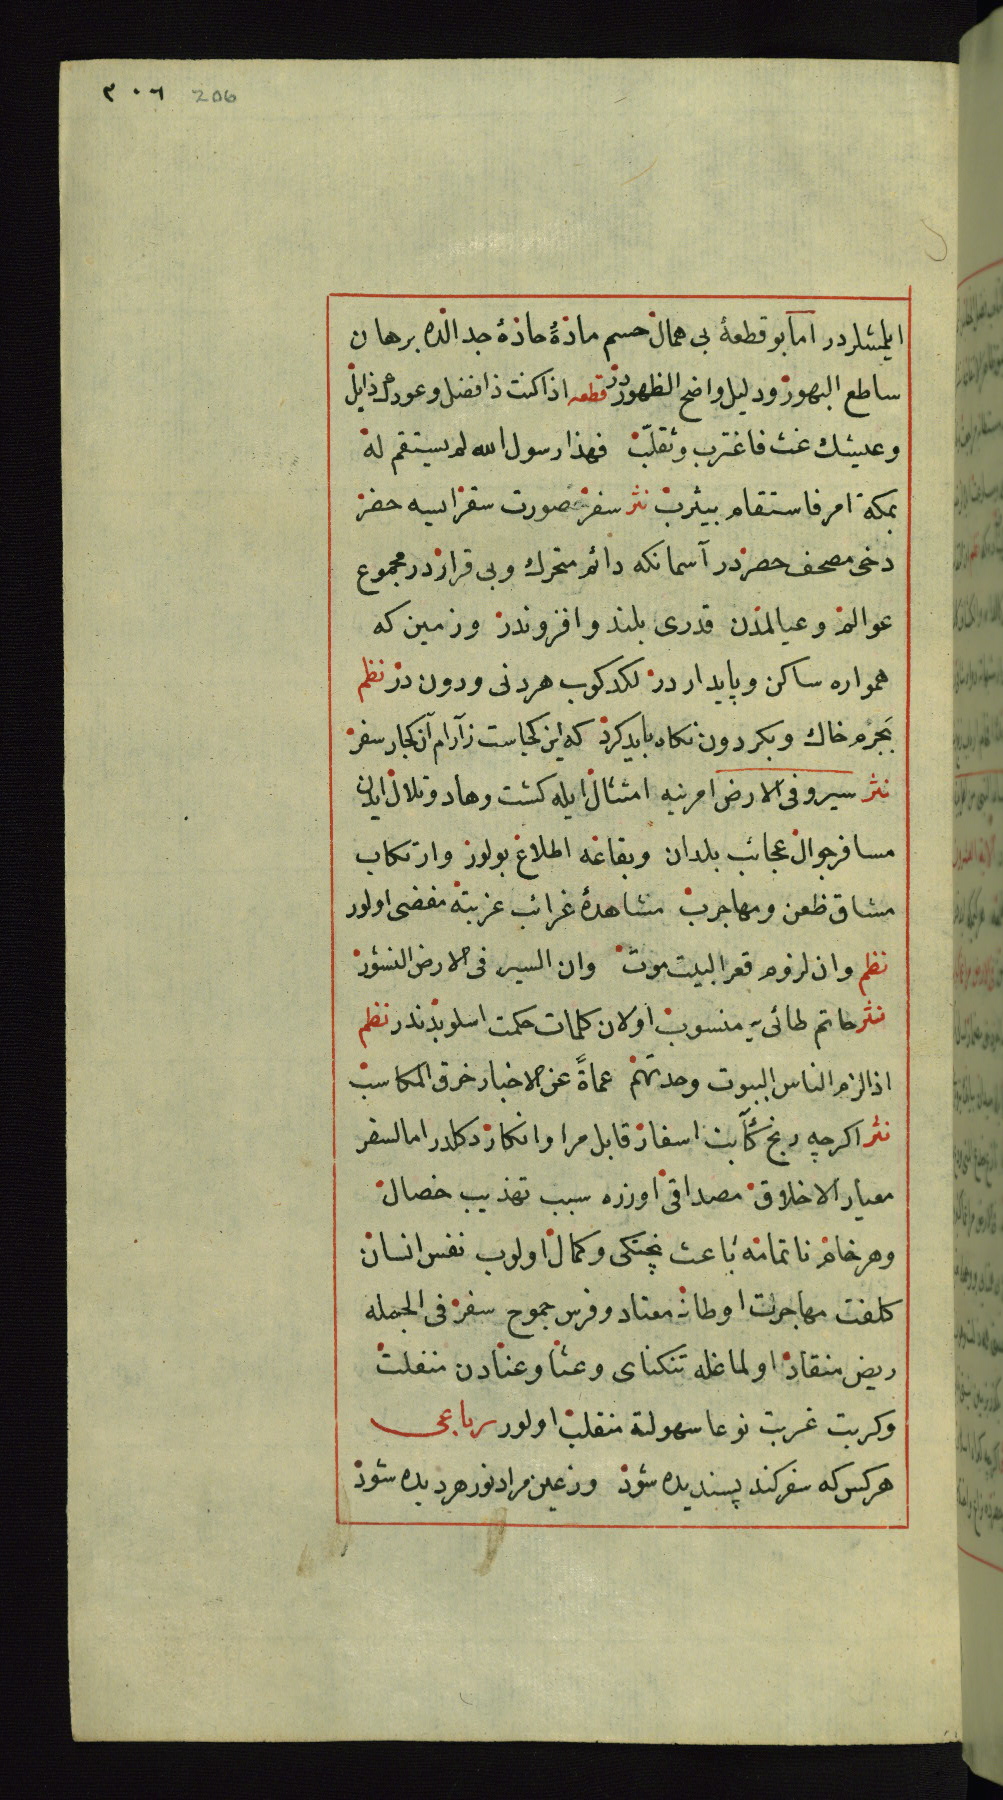 ٣٠٦ 206
ایلمشلردر اما بو قطعۀ بی همال حسم مادۀ حادۀ جد الده برهان
ساطع البهور و دلیل واضح الظهوردر قطعه اذا کنت ذا فضل وعودك ذابل
وعیشك غث فاغترب وتقلب فهذا رسول الله لم یستقم له
بمکة امر فاستقام بیثرب نثر سفر صورت سقر ایسه حضر
دخی مصحف حصر در آسمانکه دائم متحرك و بی قرار در مجموع
عوالم و عیالمدن قدری بلند و افزوندر و زمین که
همواره ساکن و پایدار در لکدکوب هر دنی و دون در نظم
بجرم خاك و بکردون نکاه باید کرد که این کجاست زآرام آن کجا ز سفر
نثر سیرو فی الارض امرینه امتثال ایله کشت وهاد و تلال ایدن
مسافر جوال عجائب بلدان و بقاعه اطلاع بولور و ارتکاب
مشاق ظعن و مهاجرت مشاهدۀ غرائب غربته مفضی اولور
نظم وان لزوم قعر البیت موت وان السیر فی الارض النشور
نثر حاتم طائی یه منسوب اولان کلمات حکمت اسلوبدندر نظم
اذا لزم الناس البیوت وجدتهم عماةً عن الاخبار خرق المکاسب
نثر اکرچه رنج کآبت اسفار قابل مرا و انکار دکلدر اما السفر
معیار الاخلاق مصداقی اوزره سبب تهذیب خصال
وهر خام ناتمامه باعث پختکی و کمال اولوب نفس انسان
کلفت مهاجرت اوطانه معتاد و فرس جموح سفر فی الجمله
ریض منقاد اولماغله تنکنای وعثا و عنادن منفلت
وکربت غربت نوعا سهولته منقلب اولور رباعی
هر کس که سفر کند پسندیده شود وز عین مراد نور هر دیده شود